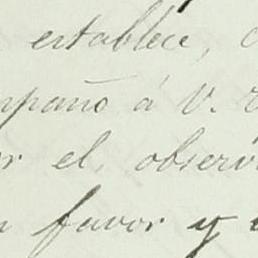 establece,
mpaño á V. E
or el observ
n favor y